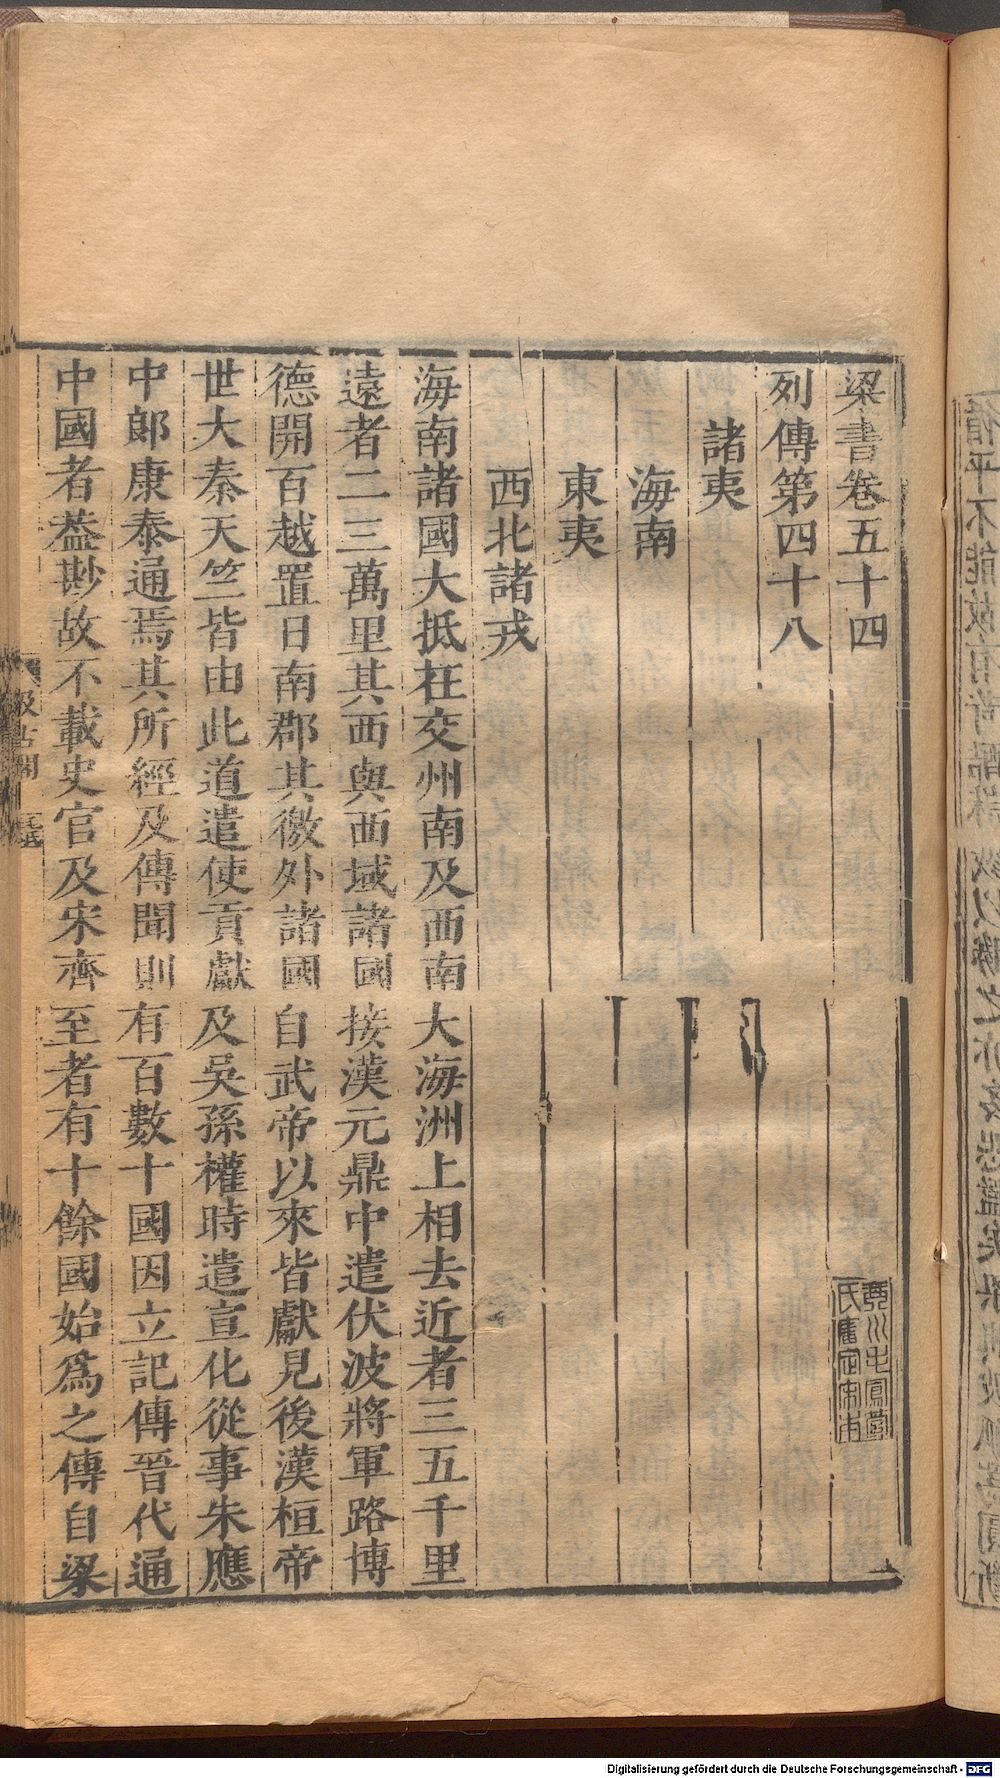 梁書卷五十四
列傳第四十八
諸夷
海南
東夷
西北諸戎
海南諸國大抵在交州南及西南大海洲上相去近者三五千里
遠者二三萬里其西與西域諸國接漢元鼎中遣伏波將軍路博
德開百越置日南郡其徼外諸國自武帝以來皆獻見後漢桓帝
世大秦天竺皆由此道遣使貢獻及吳孫權時遣宣化從事朱應
中郎康泰通焉其所經及傳聞則有百數十國因立記傳晉代通
中國者葢尠故不載史官及宋齊至者有十餘國始爲之傳自梁
汲古閣
Digitalisierung gefördert durch die Deutsche Forschungsgemeinschaft - DFG